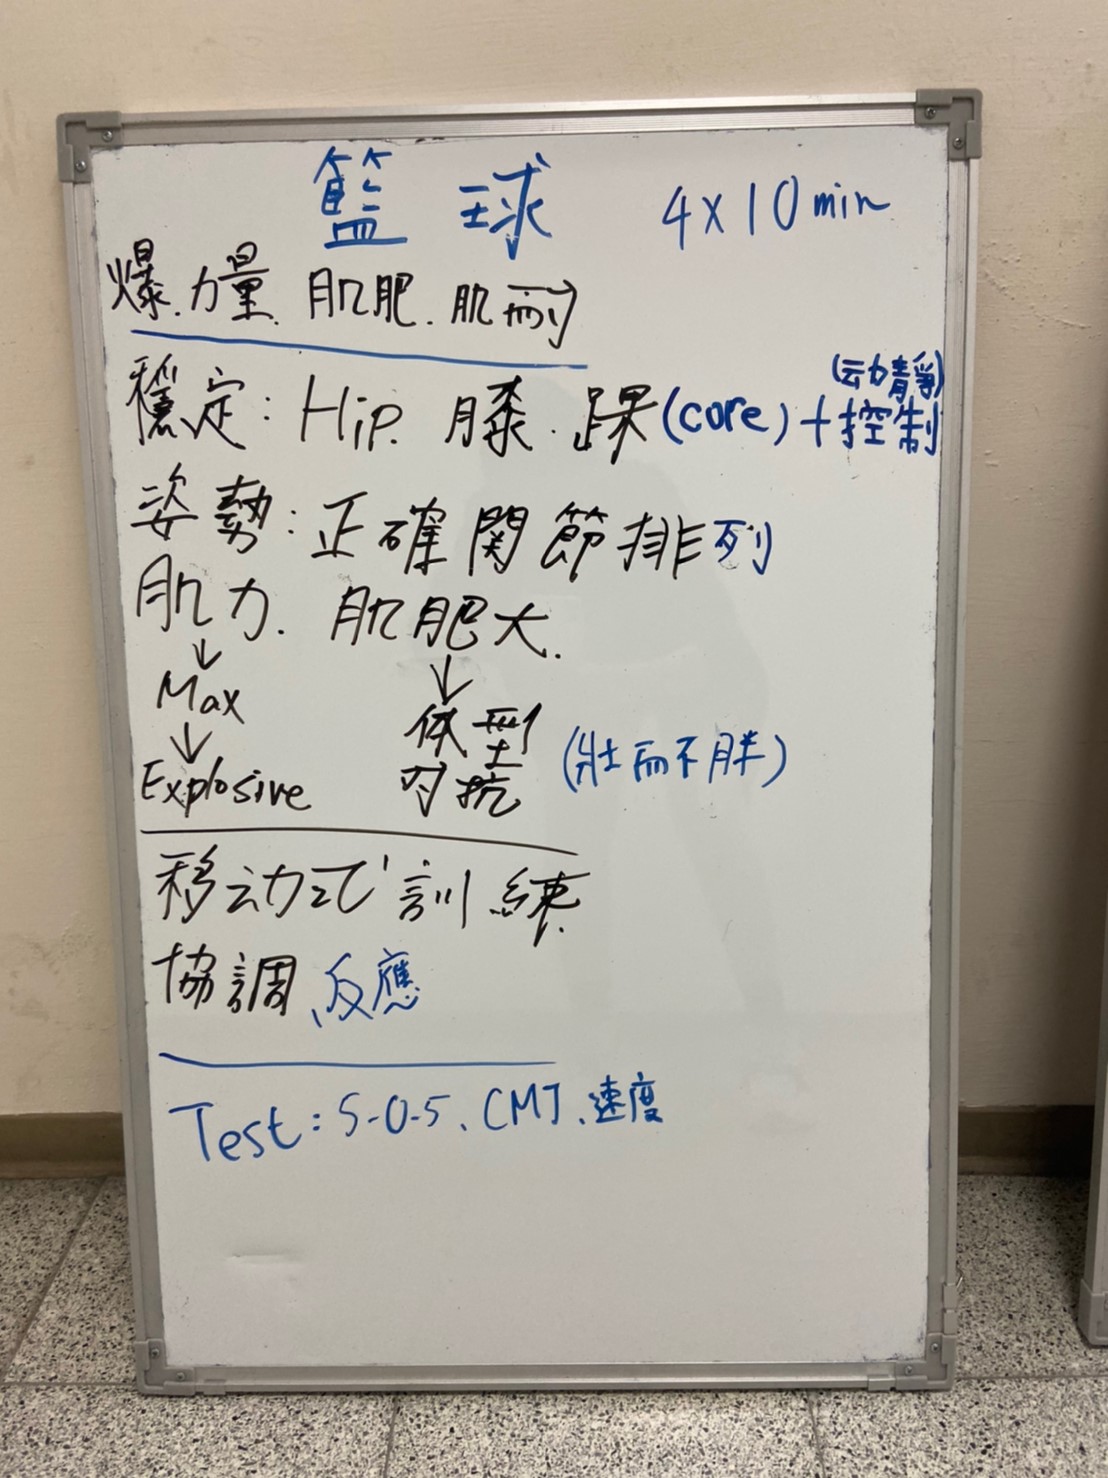 籃球 4×10min
爆.力量.肌肥.肌耐
穩定:Hip.膝.踝(core)+控制
(动力靜)
姿勢:正確関節排列
肌力.肌肥大.
↓ ↓
Max 体型
↓ 对抗 (壯而不胖)
Explosive
移动式訓練
協調、反應
Test:5-0-5、CMJ、速度